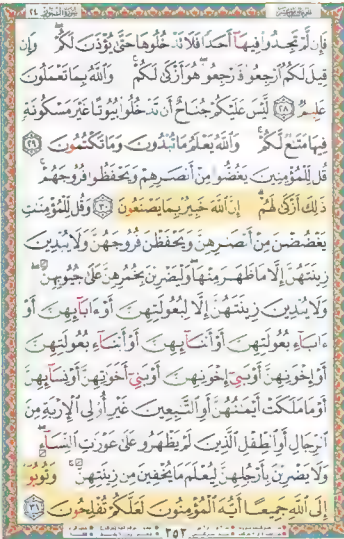 سُورَةُ النُّورِ ٢٤
فَإِن لَّمْ تَجِدُوا فِيهَآ أَحَدًا فَلَا تَدْخُلُوهَا حَتَّىٰ يُؤْذَنَ لَكُمْ ۖ وَإِن
قِيلَ لَكُمُ ارْجِعُوا فَارْجِعُوا ۖ هُوَ أَزْكَىٰ لَكُمْ ۚ وَاللَّهُ بِمَا تَعْمَلُونَ
عَلِيمٌ ٢٨ لَّيْسَ عَلَيْكُمْ جُنَاحٌ أَن تَدْخُلُوا بُيُوتًا غَيْرَ مَسْكُونَةٍ
فِيهَا مَتَاعٌ لَّكُمْ ۚ وَاللَّهُ يَعْلَمُ مَا تُبْدُونَ وَمَا تَكْتُمُونَ ٢٩
قُل لِّلْمُؤْمِنِينَ يَغُضُّوا مِنْ أَبْصَارِهِمْ وَيَحْفَظُوا فُرُوجَهُمْ ۚ
ذَٰلِكَ أَزْكَىٰ لَهُمْ ۗ إِنَّ اللَّهَ خَبِيرٌ بِمَا يَصْنَعُونَ ٣٠ وَقُل لِّلْمُؤْمِنَاتِ
يَغْضُضْنَ مِنْ أَبْصَارِهِنَّ وَيَحْفَظْنَ فُرُوجَهُنَّ وَلَا يُبْدِينَ
زِينَتَهُنَّ إِلَّا مَا ظَهَرَ مِنْهَا ۖ وَلْيَضْرِبْنَ بِخُمُرِهِنَّ عَلَىٰ جُيُوبِهِنَّ ۖ
وَلَا يُبْدِينَ زِينَتَهُنَّ إِلَّا لِبُعُولَتِهِنَّ أَوْ ءَابَآئِهِنَّ أَوْ
ءَابَآءِ بُعُولَتِهِنَّ أَوْ أَبْنَآئِهِنَّ أَوْ أَبْنَآءِ بُعُولَتِهِنَّ
أَوْ إِخْوَانِهِنَّ أَوْ بَنِيٓ إِخْوَانِهِنَّ أَوْ بَنِيٓ أَخَوَاتِهِنَّ أَوْ نِسَآئِهِنَّ
أَوْ مَا مَلَكَتْ أَيْمَانُهُنَّ أَوِ التَّابِعِينَ غَيْرِ أُولِي الْإِرْبَةِ مِنَ
الرِّجَالِ أَوِ الطِّفْلِ الَّذِينَ لَمْ يَظْهَرُوا عَلَىٰ عَوْرَاتِ النِّسَآءِ ۖ
وَلَا يَضْرِبْنَ بِأَرْجُلِهِنَّ لِيُعْلَمَ مَا يُخْفِينَ مِن زِينَتِهِنَّ ۚ وَتُوبُوٓا
إِلَى اللَّهِ جَمِيعًا أَيُّهَ الْمُؤْمِنُونَ لَعَلَّكُمْ تُفْلِحُونَ ٣١